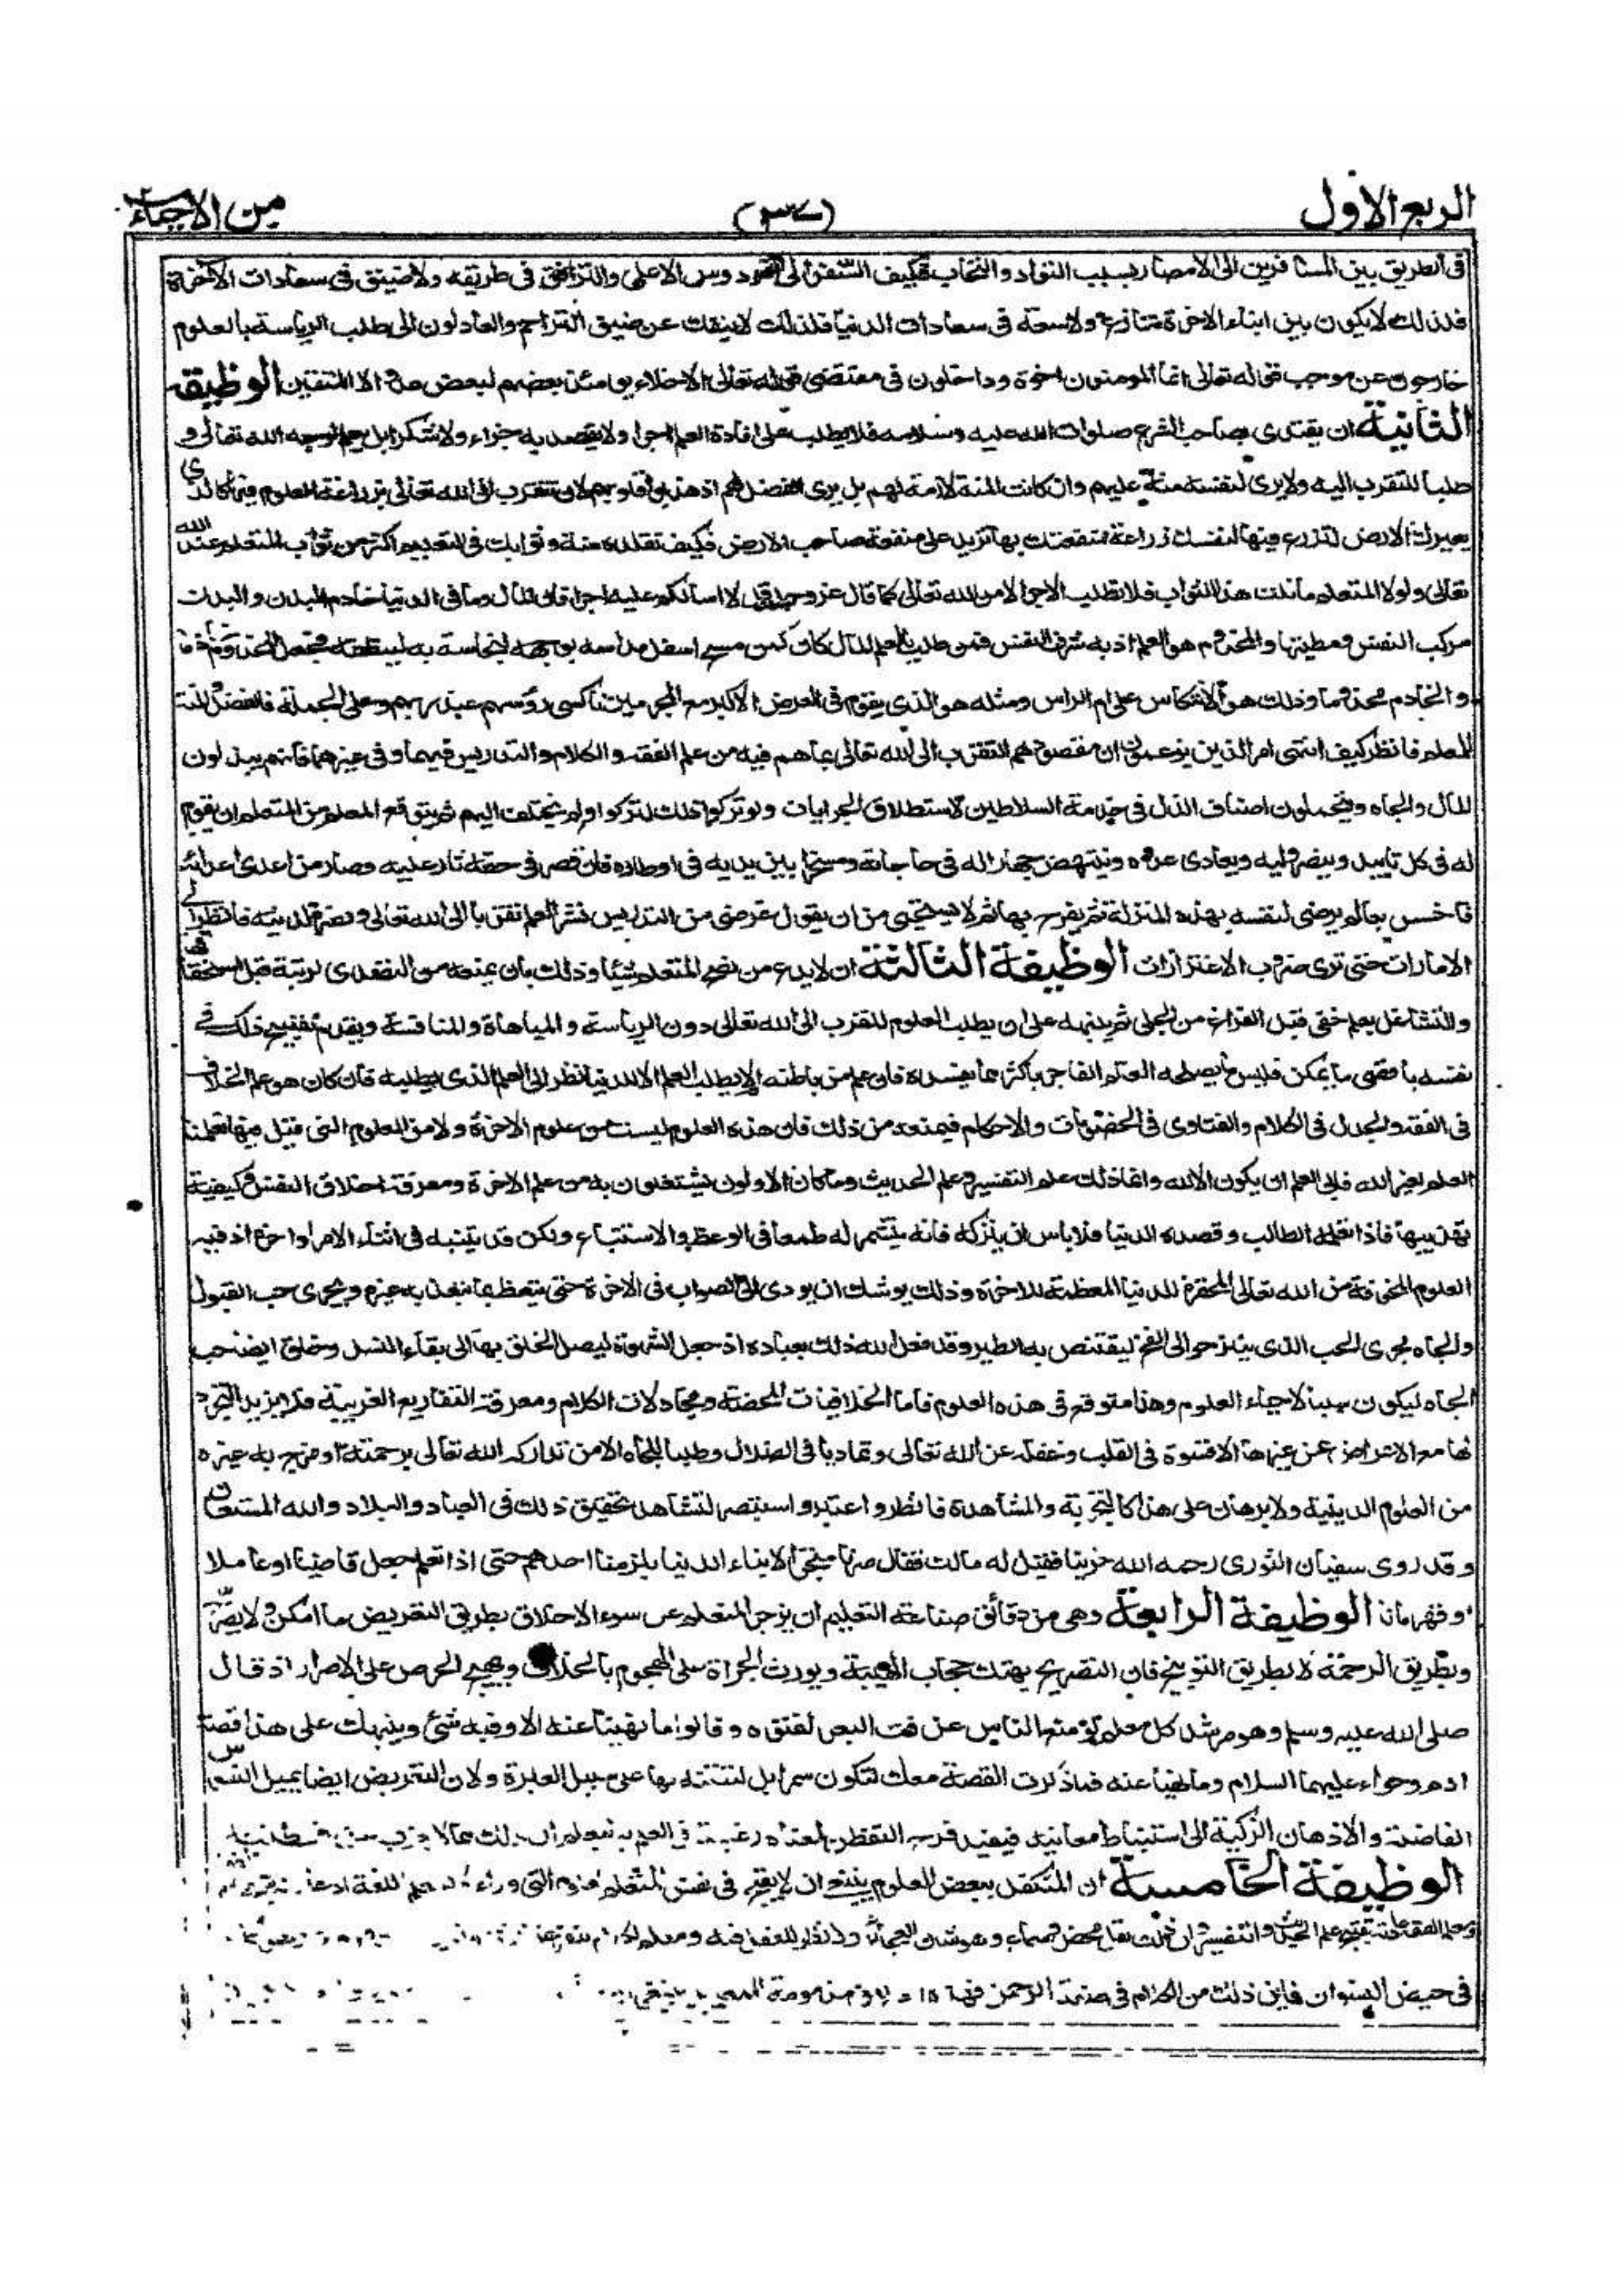 الربع الاول (٣٧) من الاحياء
فى الطريق بين المسافرين الى الامصار بسبب التواد والتحاب فكيف السفر الى الفردوس الاعلى والترافق فى طريقه ولا ضيق فى سعادات الاخرة
فلذلك لا يكون بين ابناء الاخرة تنازع ولا سعة فى سعادات الدنيا فلذلك لا ينفك عن ضيق التزاحم والعادلون الى طلب الرياسة بالعلوم
خارجون عن موجب قوله تعالى انما المومنون اخوة وداخلون فى مقتضى قوله تعالى الاخلاء يومئذ بعضهم لبعض عدو الا المتقين الوظيفة
الثانية ان يقتدى بصاحب الشرع صلوات الله عليه وسلامه فلا يطلب على افادة العلم اجرا ولا يقصد به جزاء ولا شكرا بل يعلم لوجه الله تعالى و
طلبا للتقرب اليه ولا يرى لنفسه منة عليهم وان كانت المنة لازمة لهم بل يرى الفضل لهم اذ هذبوا قلوبهم لان تتقرب الى الله تعالى بزراعة العلوم فيها كالذى
يعيرك الارض لتزرع فيها لنفسك زراعة فمنفعتك بها تزيد على منفعة صاحب الارض فكيف تقلده منة وثوابك فى التعليم اكثر من ثواب المتعلم عند الله
تعالى ولولا المتعلم ما نلت هذا الثواب فلا تطلب الاجر الا من الله تعالى كما قال عز وجل قل لا اسألكم عليه اجرا فان المال وما فى الدنيا خادم البدن والبدن
مركب النفس ومطيتها والمخدوم هو العلم اذ به شرف النفس فمن طلب بالعلم المال كان كمن مسح اسفل مداسه بوجهه لينظفه فجعل المخدوم خادما
والخادم مخدوما وذلك هو الانتكاس على ام الراس ومثله هو الذى يقوم فى العرض الاكبر مع المجرمين ناكسى رؤسهم عند ربهم وعلى الجملة فالفضل والمنة
للمعلم فانظر كيف انتهى امر الذين يزعمون ان مقصودهم التقرب الى الله تعالى بما هم فيه من علم الفقه والكلام والتدريس فيهما وفى غيرهما فانهم يبذلون
المال والجاه ويتحملون اصناف الذل فى خدمة السلاطين لاستطلاق الجرايات ولو تركوا ذلك لتركوا ولم يختلف اليهم ثم يتوقع المعلم من المتعلم ان يقوم
له فى كل نايبة وينصر وليه ويعادى عدوه وينتهض جهارا له فى حاجاته ومسخرا بين يديه فى اوطاره فان قصر فى حقه ثار عليه وصار من اعدى اعدائه
فاخسس بعالم يرضى لنفسه بهذه المنزلة ثم يفرح بها ثم لا يستحيى من ان يقول غرضى من التدريس نشر العلم تقربا الى الله تعالى ونصرة لدينه فانظر الى
الامارات حتى ترى ضروب الاغترارات الوظيفة الثالثة ان لا يدع من نصح المتعلم شيئا وذلك بان يمنعه من التصدى لرتبة قبل استحقاقها
والتشاغل بعلم خفى قبل الفراغ من الجلى ثم ينبهه على ان يطلب العلوم للقرب الى الله تعالى دون الرياسة والمباهاة والمنافسة ويقدم تقبيح ذلك فى
نفسه باقصى ما يمكن فليس ما يصلحه العالم الفاجر باكثر مما يفسده فان علم من باطنه انه لا يطلب العلم الا للدنيا نظر الى العلم الذى يطلبه فان كان هو علم الخلاف
فى الفقه والجدل فى الكلام والفتاوى فى الخصومات والاحكام فيمنعه من ذلك فان هذه العلوم ليست من علوم الاخرة ولا من العلوم التى قيل فيها تعلمنا
العلم لغير الله فابى العلم ان يكون الا لله وانما ذلك علم التفسير وعلم الحديث وما كان الاولون يشتغلون به من علم الاخرة ومعرفة اخلاق النفس وكيفية
تهذيبها فاذا تعلمه الطالب وقصده الدنيا فلا باس ان يتركه فانه يتشمر له طمعا فى الوعظ والاستتباع ولكن قد يتنبه فى اثناء الامر او اخره اذ فيه
العلوم المخوفة من الله تعالى المحقرة للدنيا المعظمة للاخرة وذلك يوشك ان يودى الى الصواب فى الاخرة حتى يتعظ بما يعظ به غيره ويجرى حب القبول
والجاه مجرى الحب الذى ينثر حوالى الفخ ليقتنص به الطير وقد فعل الله ذلك بعباده اذ جعل الشهوة ليصل الخلق بها الى بقاء النسل وخلق ايضا حب
الجاه ليكون سببا لاحياء العلوم وهذا متوقع فى هذه العلوم فاما الخلافيات المحضة ومجادلات الكلام ومعرفة التفاريع الغريبة فلا يزيد التجرد
لها مع الاعراض عن غيرها الا قسوة فى القلب وغفلة عن الله تعالى وتماديا فى الضلال وطلبا للجاه الا من تداركه الله تعالى برحمته او مزج به غيره
من العلوم الدينية ولا برهان على هذا كالتجربة والمشاهدة فانظر واعتبر واستبصر لتشاهد تحقيق ذلك فى العباد والبلاد والله المستعان
وقد روى سفيان الثورى رحمه الله حزينا فقيل له مالك فقال صرنا متجرا لابناء الدنيا يلزمنا احدهم حتى اذا تعلم جعل قاضيا او عاملا
او قهرمانا الوظيفة الرابعة وهى من دقائق صناعة التعليم ان يزجر المتعلم عن سوء الاخلاق بطريق التعريض ما امكن ولا يصرح
وبطريق الرحمة لا بطريق التوبيخ فان التصريح يهتك حجاب الهيبة ويورث الجراة على الهجوم بالخلاف ويهيج الحرص على الاصرار اذ قال
صلى الله عليه وسلم وهو مرشد كل معلم لو منع الناس عن فت البعر لفتوه وقالوا ما نهينا عنه الا وفيه شئ وينبهك على هذا قصة
ادم وحواء عليهما السلام وما نهيا عنه فما ذكرت القصة معك لتكون سمرا بل لتتنبه بها على سبيل العبرة ولان التعريض ايضا يميل النفوس
الفاضلة والاذهان الزكية الى استنباط معانيه فيفيد فرح التفطن لمعناه رغبة فى العلم به ليعلم ان ذلك مما لا يعزب عن فطنته
الوظيفة الخامسة ان المتكفل ببعض العلوم ينبغى ان لا يقبح فى نفس المتعلم العلوم التى وراءه كمعلم اللغة اذ عادته تقبيح علم
ومعلم الفقه عادته تقبيح علم الحديث والتفسير وان ذلك نقل محض وسماع وهو شان العجائز ولا نظر للعقل فيه ومعلم الكلام ينفر عن
فى حيض النسوان فاين ذلك من الكلام فى صفة الرحمن فهذه اخلاق مذمومة للمعلمين ينبغى